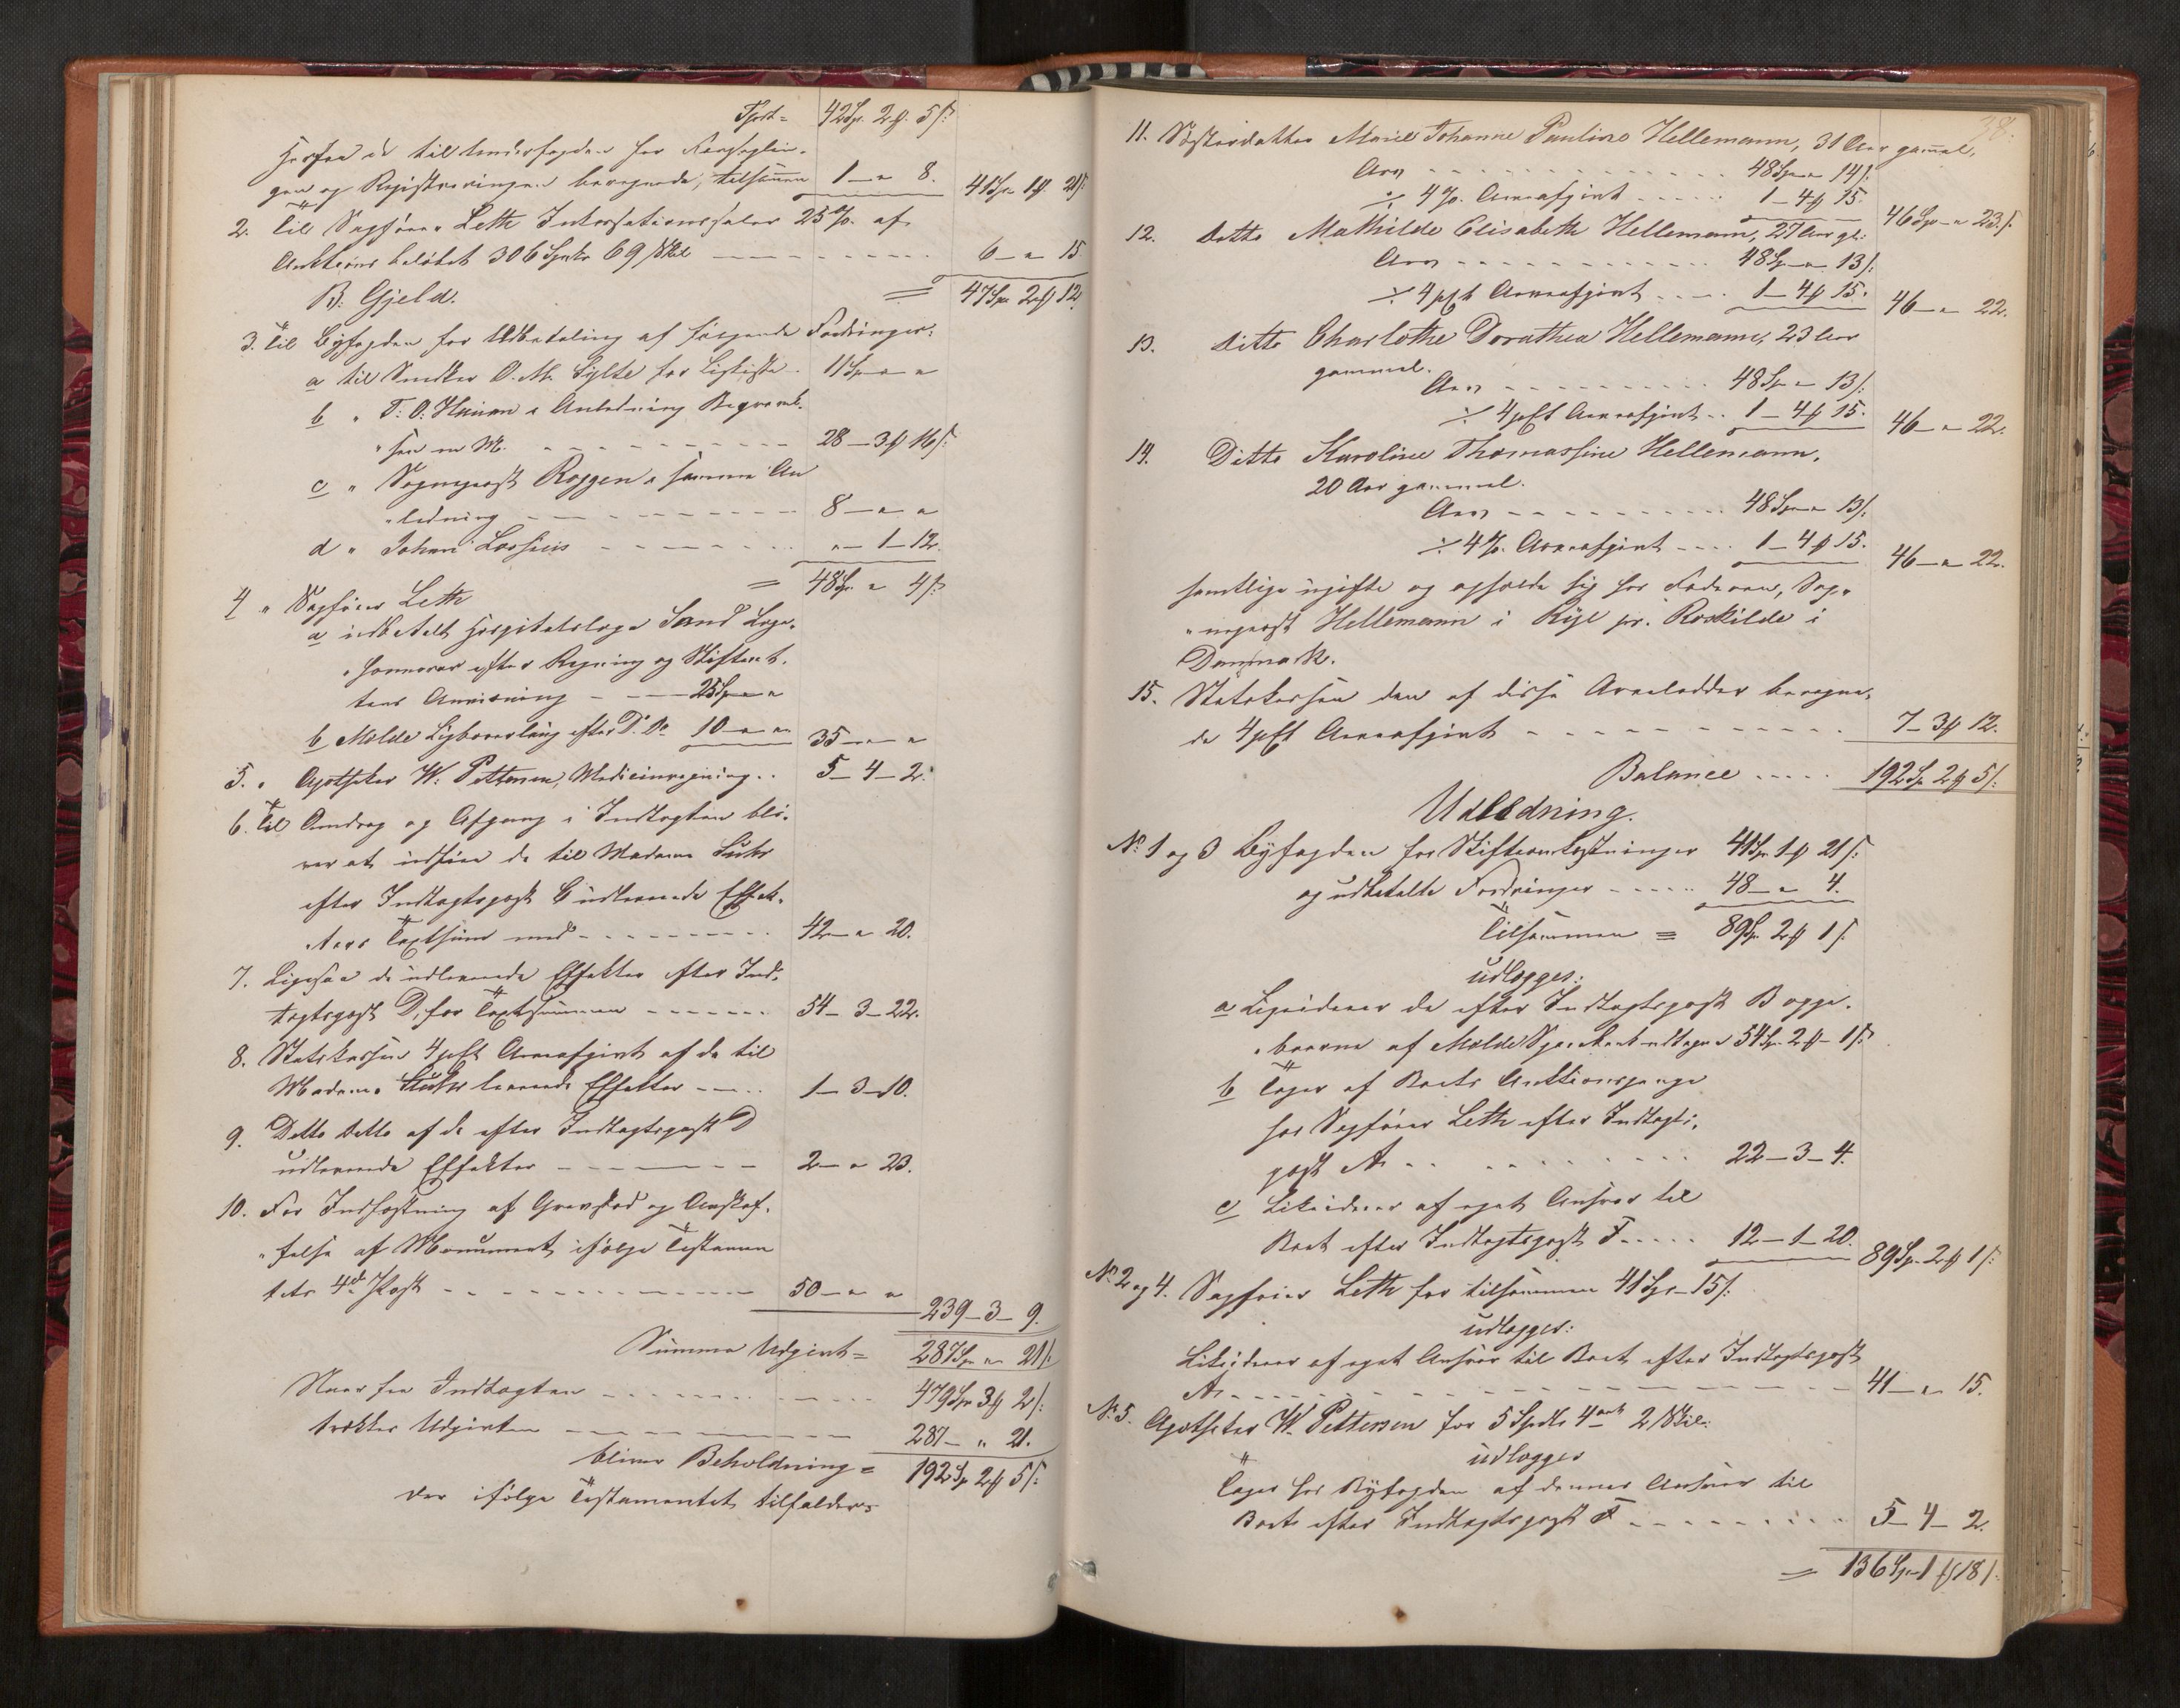 Tprt = 42 Sp. 2 ƒ. 5 s:
Herfra de til Underfogden for Forseglin-
gen og Registreringen beregnede, tilsammen 1 — " 8. 41 Sp. 1 ƒ. 21 s.
2. Til Sagfører Leth Inkassationssalær 2 % af
Auktionsbeløbet 306 Spdlr 69 Skil — — — 6 — " 15
B. Gjeld. = 47 Sp. 2 ƒ 12.
3. Til Byfogden for Udbetaling af følgende Fordringer:
a til Snedker O. M. Sylte for Ligkiste . 11 Sp. " "
b " T: O: i Anledning Begravel-
" sen 28 — 3 ƒ 16 s.
c " Sogneprest Roggen i samme An
" ledning — — — 8 — " "
d " Johan Lossius — — — " — 1 — 12.
= 48 Sp. " 4 s:
4 " Sagfører Leth
a udbetalt Hospitalslæge Sand Læge-
" honnorar efter Regning og Skifteret-
tens Anvisning — — — 25 Sp. " "
b Molde efter D: D: 10 — " " 35 — " "
5. " Apotheker W. Pettersen, Medicinregning . . 5 — 4 — 2.
6. Til Andrag og Afgang i Indtægten bli-
ver at indføre de til Madame Suhr
efter Indtægtspost C udleverede Effek-
ters Taxtsum med — — — 42 — " 20.
7. Ligesaa de udleverede Effekter efter Ind-
tægtspost D, for Taxtsummen — — — 54 — 3 — 22.
8. Statskassen 4 pCt Arveafgivt af de til
Madame Suhr leverede Effekter — — . 1 — 3 — 10.
9. Ditto Ditto af de efter Indtægtspost D
udleverede Effekter — — — 2 — " 23.
10. For Indfæstning af Gravsted og Anskaf-
" felse af Monument ifølge Testamen
tets 4de Post — — — 50 — " "
239 — 3 — 9.
Summa Udgivt = 287 Sp. " 21 s:
Naar fra Indtægten — — — 479 Sp. 3 ƒ 2 s:
trækkes Udgivten — — — 287 — " 21.
bliver Beholdning = 192 Sp. 2 ƒ 5 s:
der ifølge Testamentet tilfalder:
38.
11. Søsterdatter Marie Johanne Pauline Hellemann, 31 Aar gammel,
Arv — — — 48 Sp. " 14 s:
÷ 4 %. Arveafgivt — — — 1 — 4 ƒ 15. 46 Sp. — " 23 s.
12. Ditto Mathilde Elisabeth Hellemann, 27 Aar gl:
Arv — — — 48 Sp. — " 13 s:
÷ 4 pCt Arveafgivt — — . 1 — 4 ƒ 15. 46 — " 22.
13. Ditto Charlothe Dorathea Hellemann, 23 Aar
gammel.
Arv — — — 48 Sp. " 13 s:
÷ 4 pCt Arveafgivt . . 1 — 4 ƒ 15. 46 — " 22.
14. Ditto Karoline Thomassine Hellemann,
20 Aar gammel.
Arv — — — 48 Sp. " 13 s:
÷ 4 %. Arveafgivt — — . 1 — 4 ƒ 15. 46 — " 22.
samtlige ugifte og opholde sig hos Faderen, Sog-
" neprest Hellemann i Rye pr. Roskilde i
Danmark.
15. Statskassen den af disse Arvelodder beregne-
de 4 pCt Arveafgivt — — — 7 — 3 ƒ 12.
Balance . . . . . 192 Sp. 2 ƒ 5 s:
Udlodning.
No 1 og 3 Byfogden for Skifteomkostninger 41 Sp. 1 ƒ 21 s:
og udbetalte Fordringer — — — 48 — " 4.
Tilsammen = 89 Sp. 2 ƒ 1 s.
udlægges:
a Liqviderer de efter Indtægtspost B oppe-
" baarne af Molde Sparebank udtagne 54 Sp. 2 ƒ — 1 s:
b Tager af Boets Auktionspenge
hos Sagfører Leth efter Indtægts-
post A . . . . . . 22 — 3 — 4.
c Likviderer af eget Ansvar til
Boet efter Indtægtspost F . . . . 12 — 1 — 20. 89 Sp. 2 ƒ 1 s:
No 2 og 4. Sagfører Leth for tilsammen 41 Sp. — 15 s:
udlægges:
Likviderer af eget Ansvar til Boet efter Indtægtspost
A. — — — 41 — " 15.
No 5. Apotheker W. Pettersen for 5 Spdlr 4 ort 2 Skil:
udlægges
Tager hos Byfogden af dennes Ansvar til
Boet efter Indtægtspost F — — — 5 — 4 — 2.
= 136 Sp. — 1 ƒ 18 s.